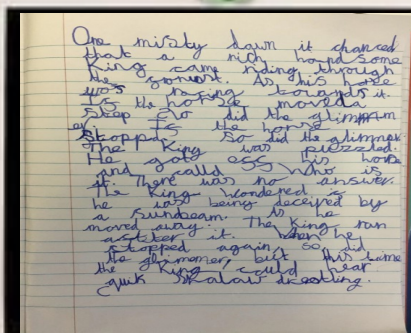 One misty dawn it chanced
that a rich handsome
King came riding through
the forest. As his horse
was racing towards it.
Is the horse moved a
step so did the glimmer
er. Is the horse
stopped so did the glimmer
The King was puzzled.
He got ess his horse
and called who is
it. There was no answer.
The King wondered is
he was being deceived by
a sunbeam. As he
moved away. The King ran
after it. When he
stopped again so did
the glimemer, but this time
the King could hear
quik shalaw